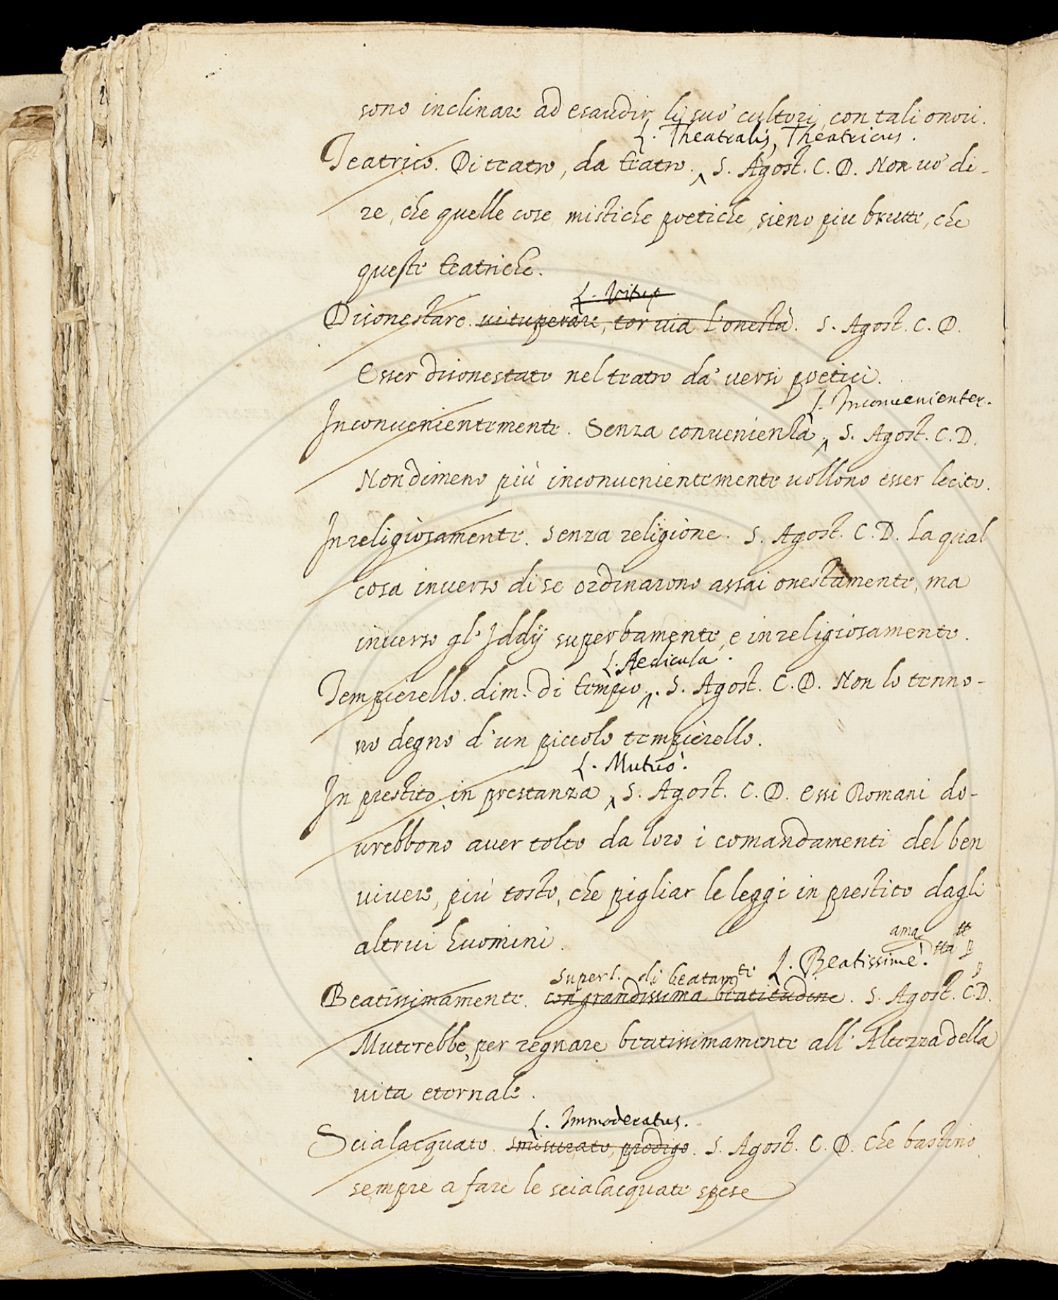 sono inclinare ad esaudir li suo' cultori con tali onori.
L. Theatralis, Theatricus.
Teatrico. Di teatro, da teatro. S. Agost. C. D. Non vo' di-
re, che quelle cose mistiche poetiche, sieno piu brutte, che
queste teatriche.
L. Vitup
Disonestare. vituperare, tor via l'onestà. S. Agost. C. D.
Esser disonestato nel teatro da' versi poetici.
L. Inconvenienter.
Inconvenientemente. Senza convenienza. S. Agost. C. D.
Nondimeno più inconvenientemente vollono esser lecito.
Inreligiosamente. Senza religione. S. Agost. C. D. La qual
cosa inverso di se ordinarono assai onestamente, ma
inverso gl' Iddij superbamente, e inreligiosamente.
L. Aedicula.
Tempierello. dim. di tempio. S. Agost. C. D. Non lo tenno-
no degno d'un piccolo tempierello.
L. Mutuò.
In prestito, in prestanza. S. Agost. C. D. Essi Romani do-
vrebbono aver tolto da loro i comandamenti del ben
vivere, più tosto, che pigliar le leggi in prestito dagli
altrui huomini.
superl. di beatamte L. Beatissimè.
Beatissimamente. con grandissima beatitudine. S. Agost. C. D.
Muterebbe, per regnare beatissimamente all' Altezza della
vita eternale.
L. Immoderatus.
Scialacquato. smisurato, prodigo. S. Agost. C. D. Che bastino
sempre a fare le scialacquate spese